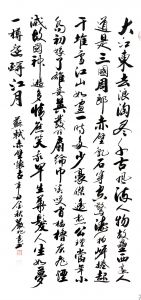 大江東去浪淘尽千古風流人物故壘西邊人
道是三國周郎赤壁亂石穿空驚濤拍岸捲起
千堆雪江山如畫一時多少豪傑遙想公瑾當年小
喬初嫁了雄姿英發羽扇綸巾談笑間檣櫓灰飛煙
滅故國神遊多情應笑我早生華髮人生如夢
一樽還酹江月 蘇軾赤壁懷古